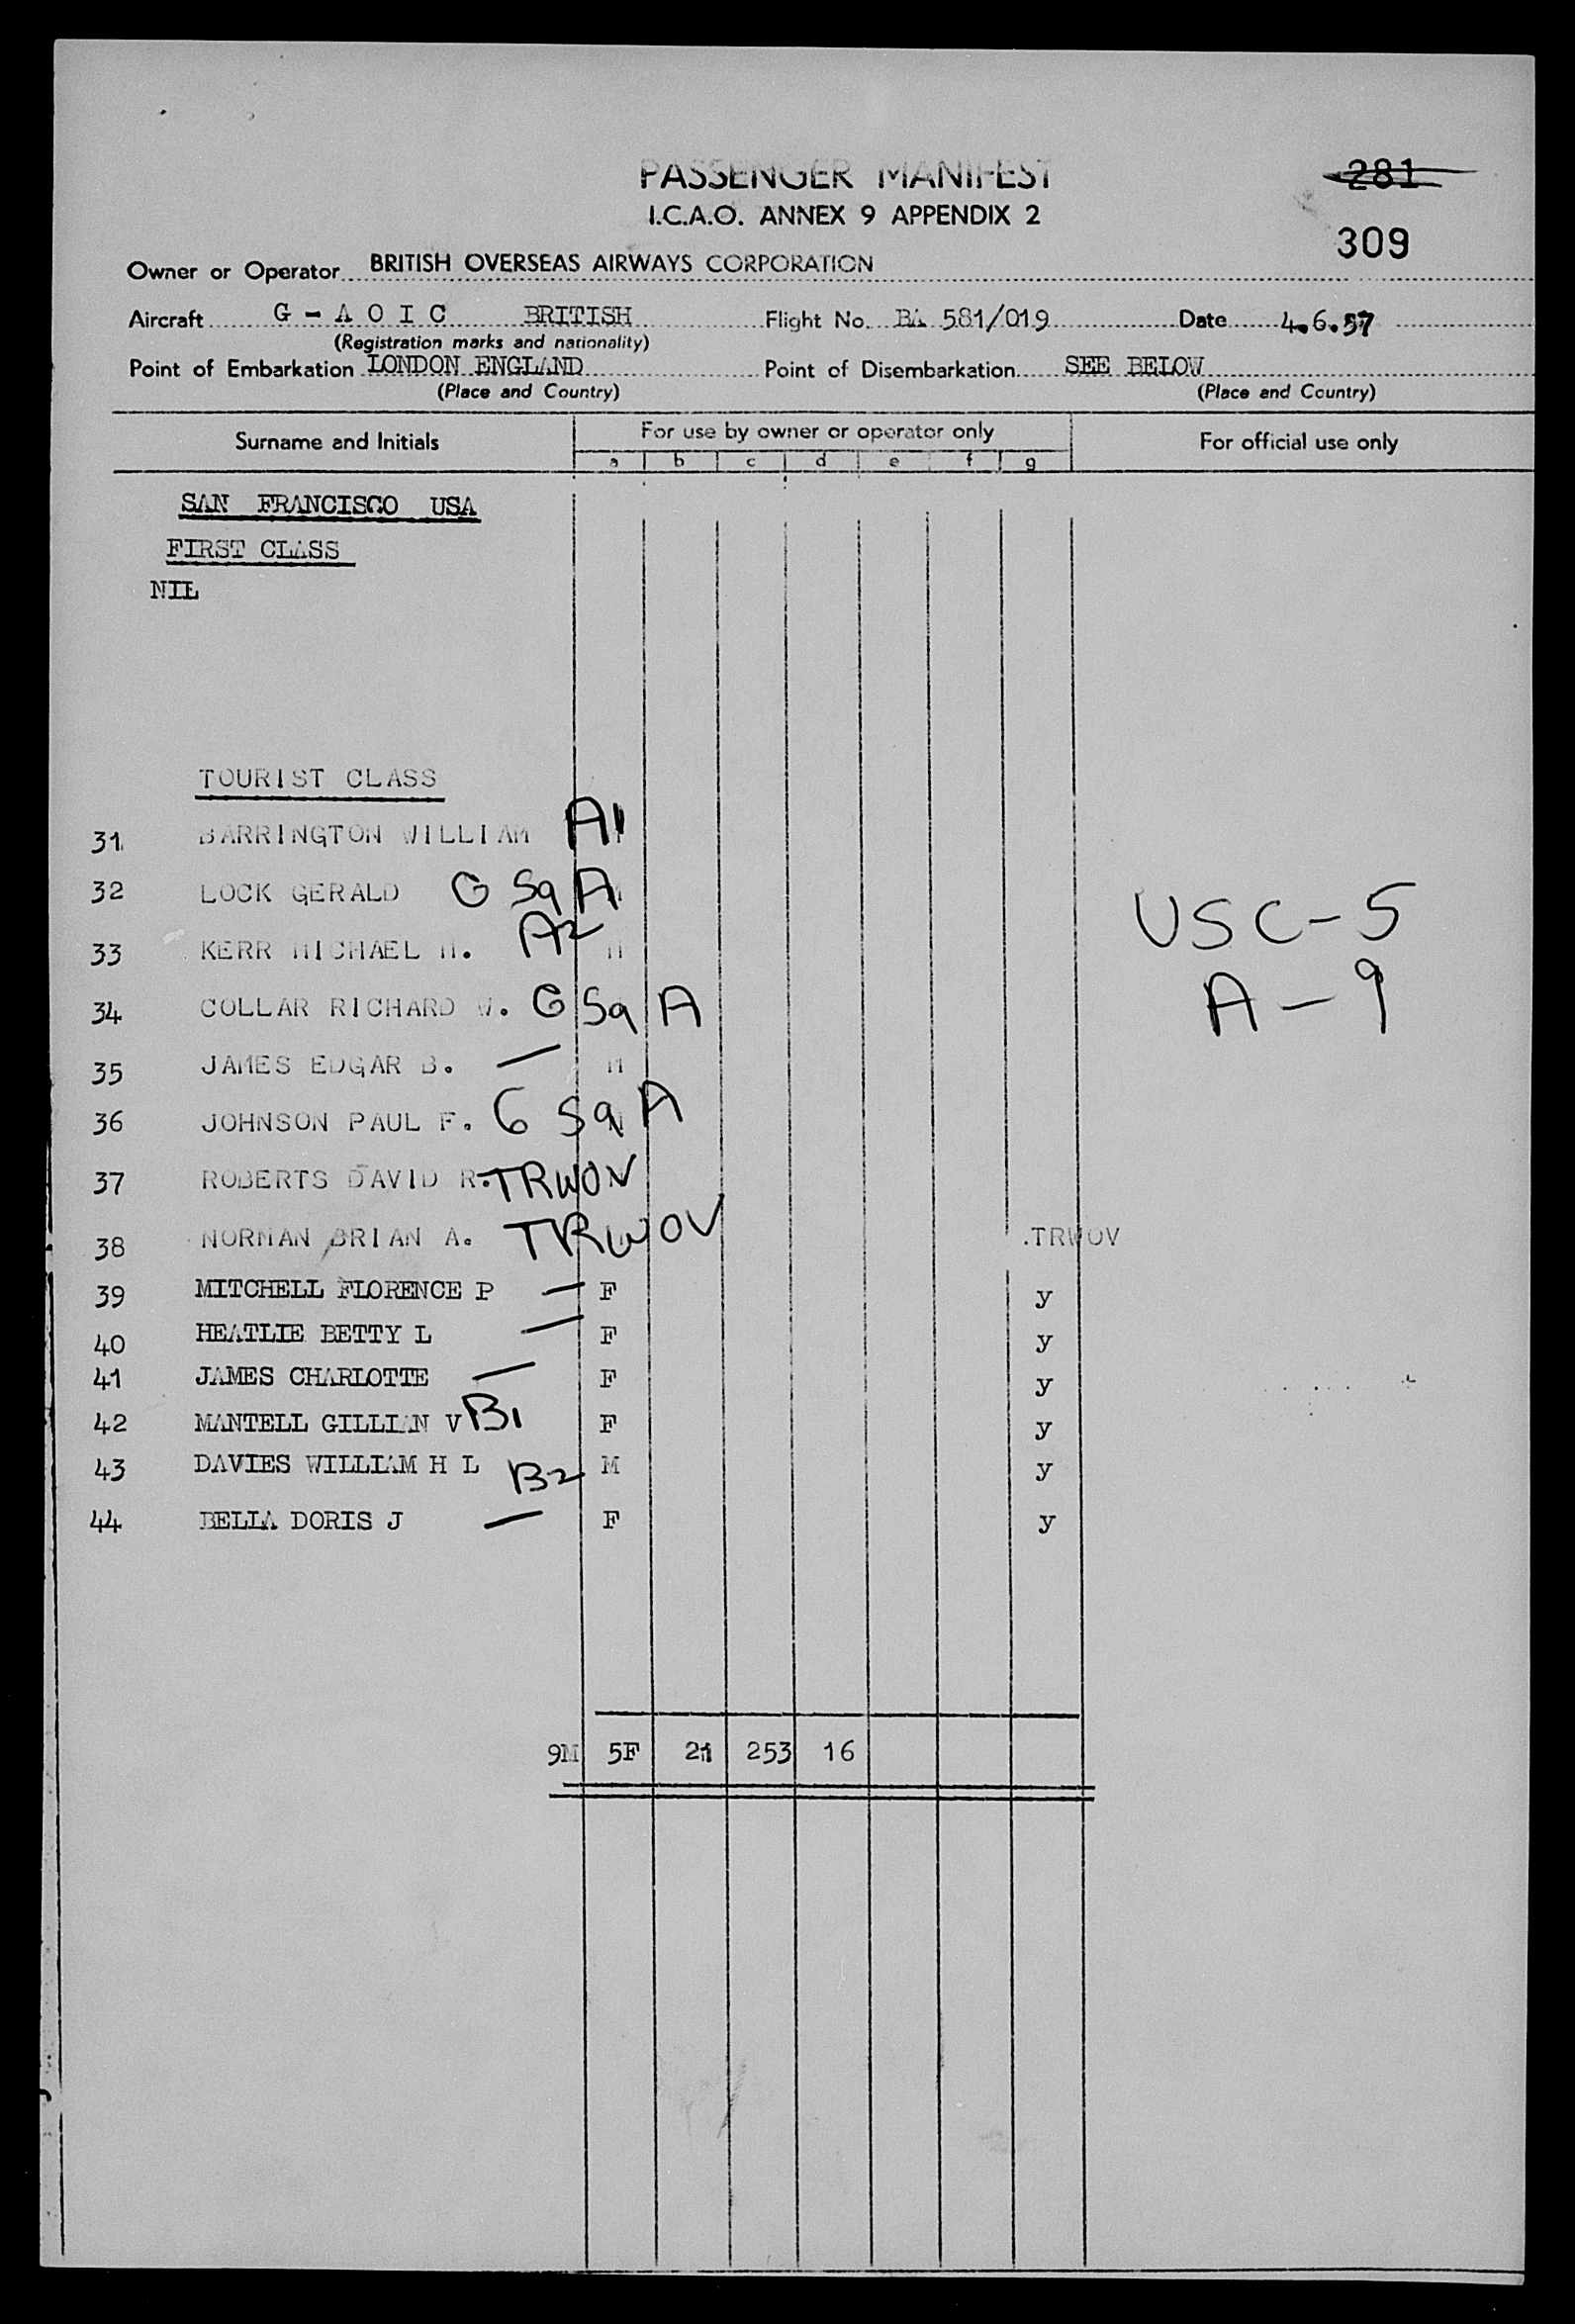 PASSENGER MANIFEST
281
I.C.A.O. ANNEX 9 APPENDIX 2
309
Owner or Operator BRITISH OVERSEAS AIRWAYS CORPORATION
Aircraft G - A O I C BRITISH Flight No. BA 581/019 Date 4.6.57
(Registration marks and nationality)
Point of Embarkation LONDON ENGLAND Point of Disembarkation SEE BELOW
(Place and Country) (Place and Country)
Surname and Initials For use by owner or operator only For official use only
a b c d e f g
SAN FRANCISCO USA
FIRST CLASS
NIL
TOURIST CLASS
31 BARRINGTON WILLIAM A1
32 LOCK GERALD G Sq A
USC-5
33 KERR MICHAEL H. A2 M
A-9
34 COLLAR RICHARD W. G Sq A
35 JAMES EDGAR B. — M
36 JOHNSON PAUL F. G Sq A
37 ROBERTS DAVID R. TRWOV
38 NORMAN BRIAN A. TRWOV .TRWOV
39 MITCHELL FLORENCE P — F y
40 HEATLIE BETTY L — F y
41 JAMES CHARLOTTE — F y
42 MANTELL GILLIAN V B1 F y
43 DAVIES WILLIAM H L B2 M y
44 BELLA DORIS J — F y
9M 5F 21 253 16